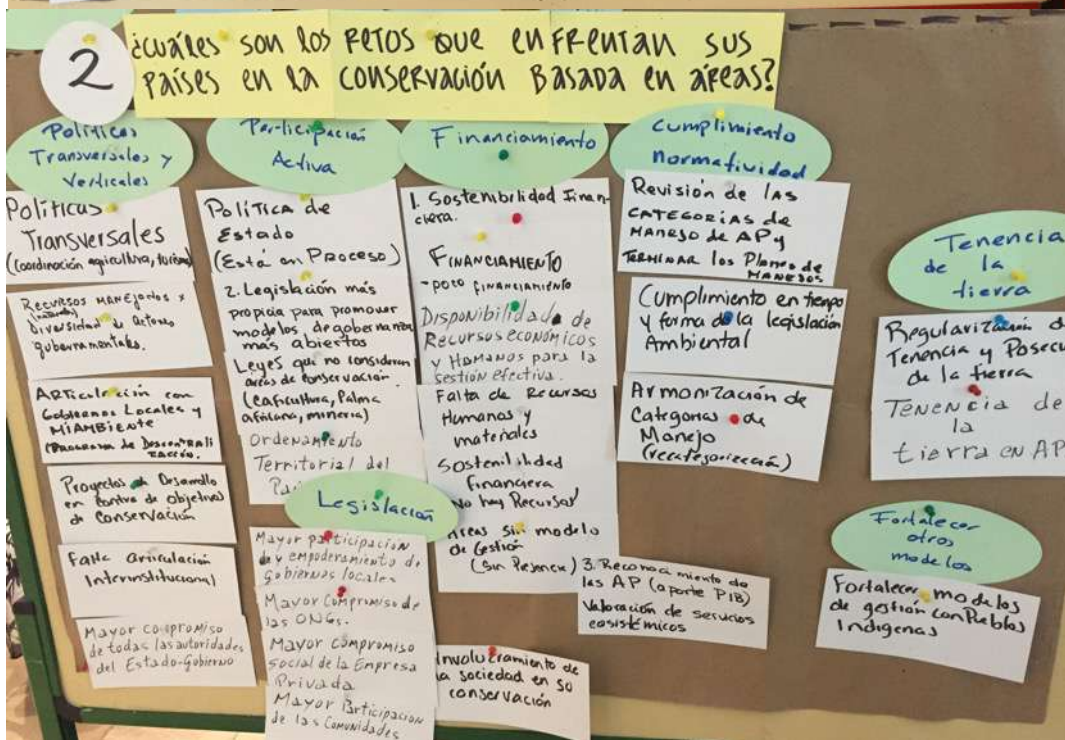 2
¿cuáles son los retos que enfrentan sus
países en la conservación basada en áreas?
Políticas
Transversales y
Verticales
Políticas
Transversales
(coordinación agricultura, turismo)
Recursos manejados x
(naturales)
diversidad de actores
gubernamentales.
Articulación con
Gobiernos Locales y
MIAMBIENTE
(Programa de Descentrali
zación.
Proyectos de Desarrollo
en contra de objetivos
de conservación
Falta articulación
Interinstitucional
Mayor compromiso
de todas las autoridades
del Estado-Gobierno
Participación
Activa
Política de
Estado
(Está en Proceso)
2. Legislación más
propicia para promover
modelos de gobernanza
más abiertos
Leyes que no consideran
áreas de conservación.
(caficultura, Palma
africana, minería)
Ordenamiento
Territorial del
Legislación
Mayor participación
y empoderamiento de
gobiernos locales
Mayor Compromiso de
las ONGs.
Mayor compromiso
social de la Empresa
Privada
Mayor Participación
de las Comunidades
Financiamiento
1. Sostenibilidad Finan-
ciera.
FINANCIAMIENTO
-poco financiamiento
Disponibilidad de
Recursos económicos
y Humanos para la
gestión efectiva.
Falta de Recursos
Humanos y
materiales
Sostenibilidad
financiera
No hay Recursos
Areas sin modelo
de Gestión
(Sin Presencia)
3. Reconocimiento de
las AP (aporte PIB)
Valoración de servicios
ecosistémicos
Involucramiento de
la sociedad en su
conservación
Cumplimiento
normatividad
Revisión de las
categorías de
Manejo de AP y
Terminar los Planes de
Manejos
Cumplimiento en tiempo
y forma de la legislación
Ambiental
Armonización de
Categorías de
Manejo
(recategorización)
Tenencia
de la
tierra
Regularización
Tenencia y
de la tierra
Tenencia de
la
tierra en AP
Fortalecer
otros
modelos
Fortalecer modelos
de gestión con Pueblos
Indígenas